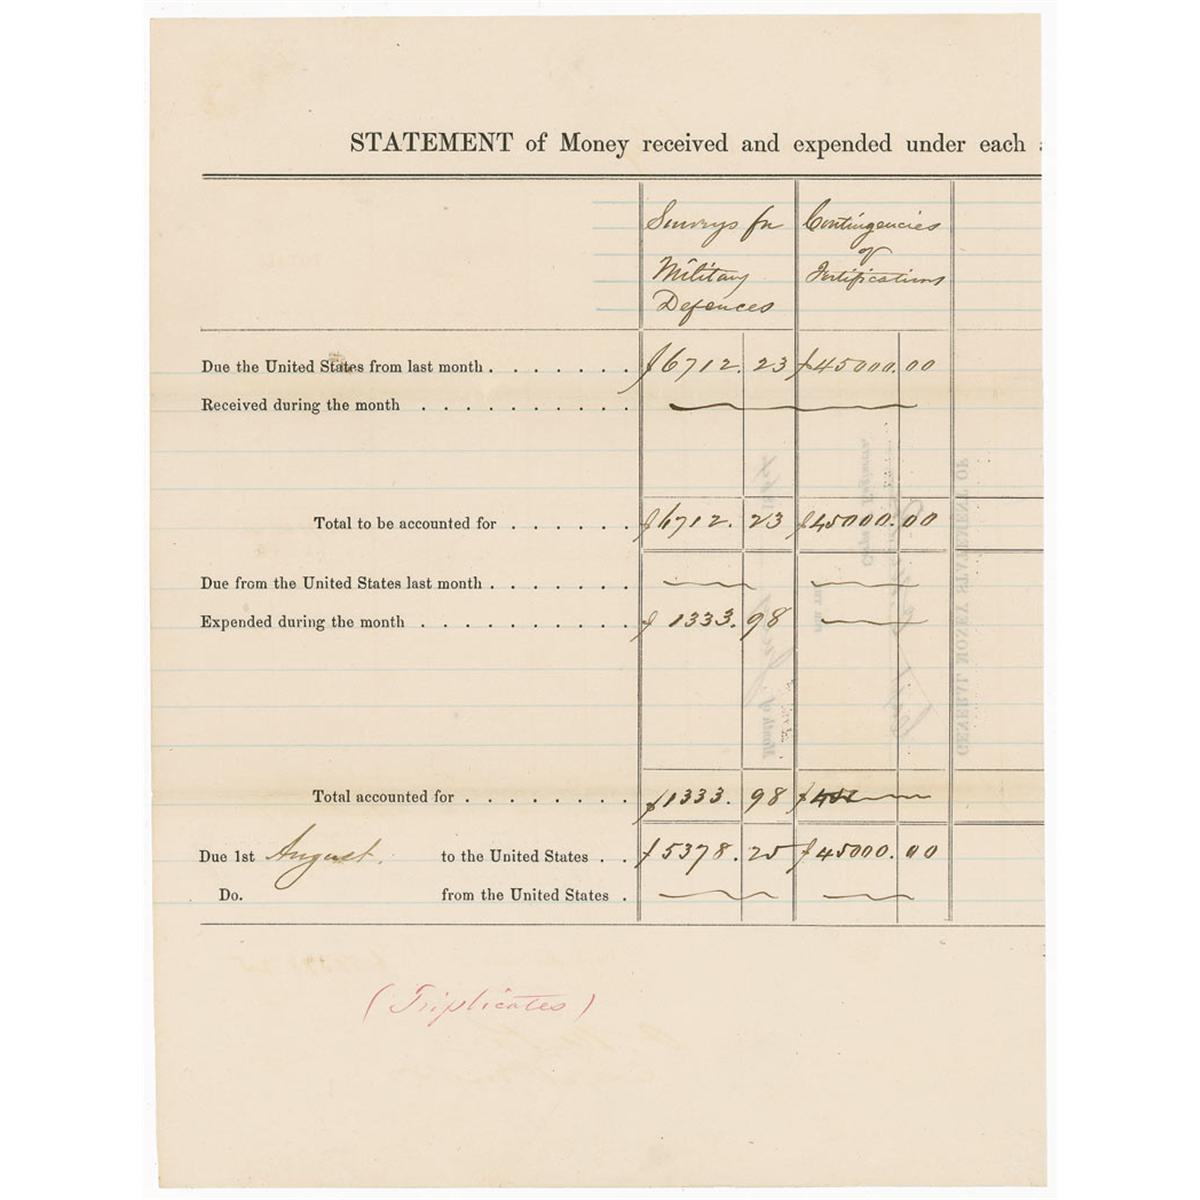 STATEMENT of Money received and expended under each
Surveys for Military Defences
Contingencies of Fortifications
Due the United States from last month . . . . . . . $6712. 23 $45000. 00
Received during the month . . . . . . . . . .
Total to be accounted for . . . . . . $6712. 23 $45000. 00
Due from the United States last month . . . . . . .
Expended during the month . . . . . . . . . . $ 1333. 98
Total accounted for . . . . . . . . $1333. 98 $
Due 1st August. to the United States . . $5378. 25 $45000. 00
Do. from the United States .
(Triplicates)
GENERAL MONEY STATEMENT OF
Month of